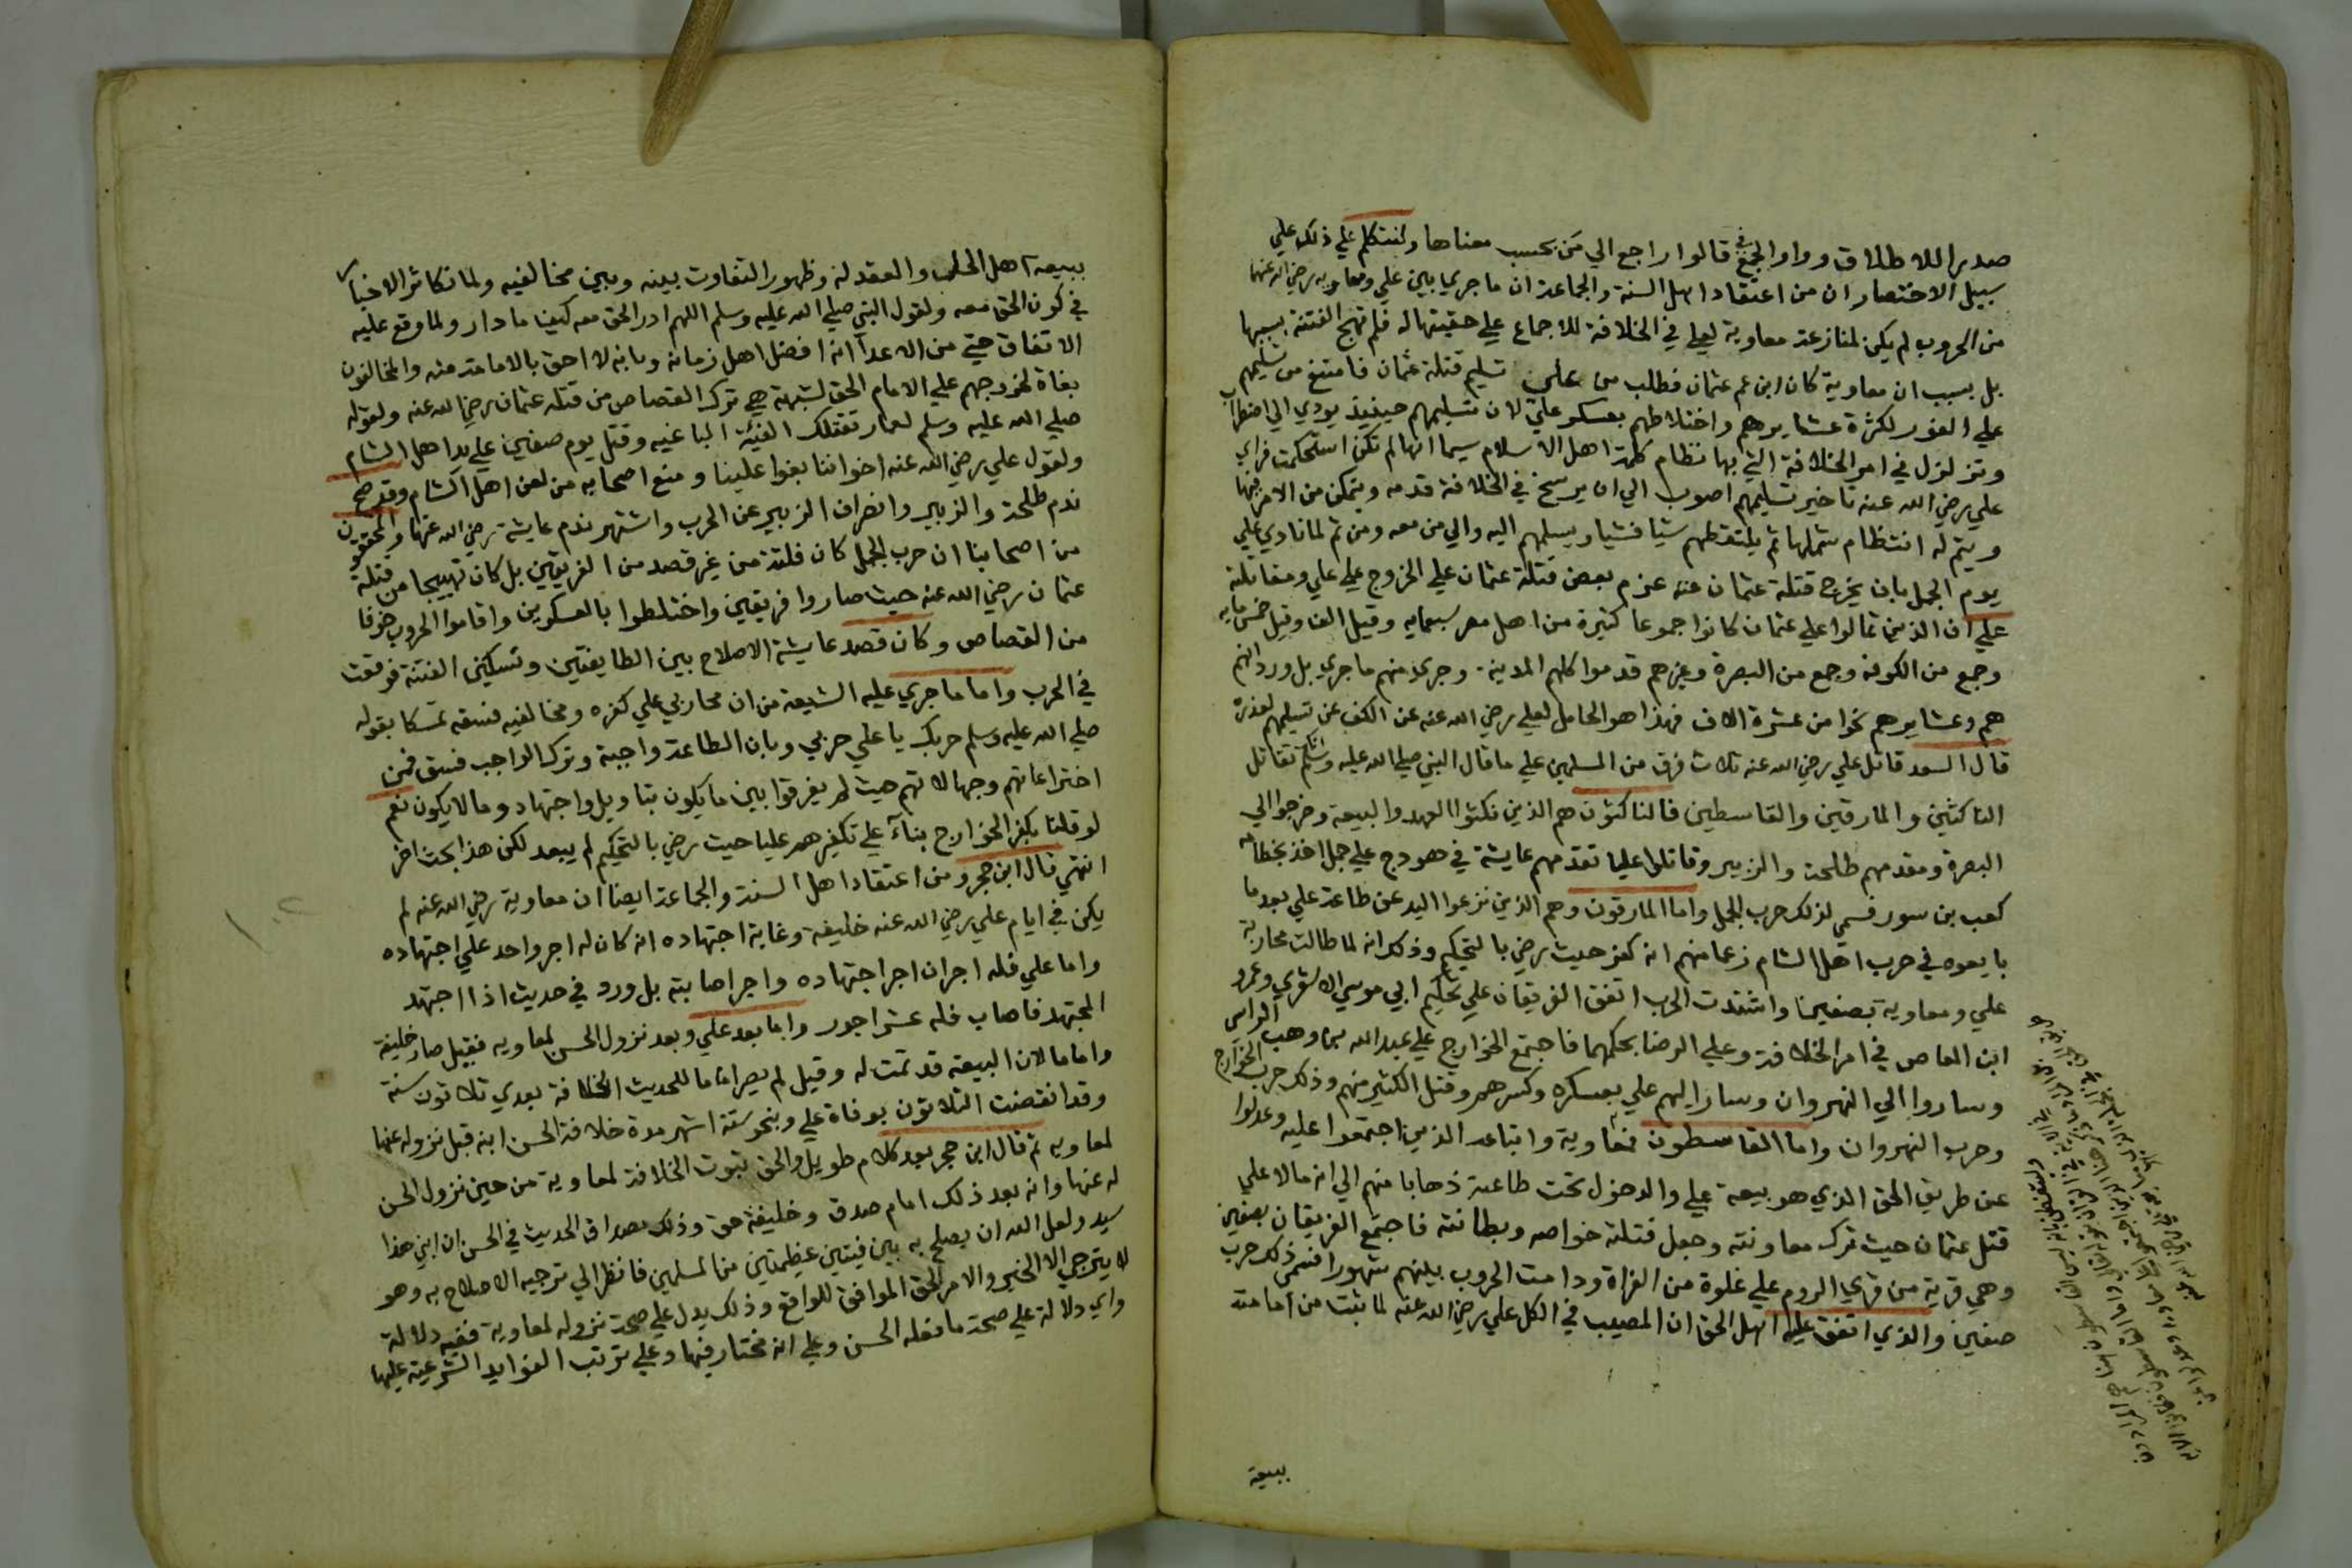 صدير الاطلاق وواو الجمع في قالوا راجع الي من بحسب معناها ولنتكلم علي ذلك علي
سبيل الاختصار ان من اعتقاد اهل السنة والجماعة ان ما جري بين علي ومعاويه رضي الله عنهما
من الحروب لم يكن لمنازعة معاوية لعلي في الخلافة للاجماع علي حقيتها له فلم تهج الفتنة بسببها
بل بسبب ان معاوية كان ابن عم عثمان فطلب من علي تسليم قتلة عثمان فامتنع من تسليمهم
علي الفور لكثرة عشايرهم واختلاطهم بعسكر علي لان تسليمهم حينيذ يودي الي اضطراب
وتزلزل في امر الخلافة التي بها نظام كلمة اهل الاسلام سيما انها لم تكن استحكمت فراي
علي رضي الله عنه تاخير تسليمهم اصوب الي ان يرسخ في الخلافة قدمه ويتمكن من الامر فيها
ويتم له انتظام شملها ثم يلتقطهم شيا فشيا ويسلمهم اليه والي من معه ومن ثم لما نادي علي
يوم الجمل بان يخرج قتلة عثمان عنه عزم بعض قتلة عثمان علي الخروج علي علي ومقاتلته
علي ان الذين تمالوا علي عثمان كانوا جموعا كثيرة من اهل مصر سبعمايه وقيل الف وقيل خمس مايه
وجمع من الكوفة وجمع من البصرة وغيرهم قدموا كلهم المدينة وجري منهم ماجري بل ورد انهم
هم وعشايرهم نحوا من عشرة الاف فهذا هو الحامل لعلي رضي الله عنه عن الكف عن تسليمهم لعذرة
قال السعد قاتل علي رضي الله عنه ثلاث فرق من المسلمين علي ما قال النبي صلي الله عليه وسلم انك تقاتل
الناكثين والمارقين والقاسطين فالناكثون هم الذين نكثوا العهد والبيعة وخرجوا الي
البصرة ومقدمهم طلحة والزبير وقاتلوا عليا تقدمهم عايشة في هودج علي جمل اخذ بخطامه
كعب بن سور فسمي لذلك حرب الجمل واما المارقون وهم الذين نزعوا اليد عن طاعة علي بعد ما
بايعوه في حرب اهل الشام زعما منهم انه كفر حيث رضي بالتحكيم وذلك انه لما طالت محاربة
علي ومعاوية بصفين واشتدت الحرب اتفق الفريقان علي تحكيم ابي موسي الاشعري وعمرو
ابن العاص في امر الخلافة وعلي الرضا بحكمهما فاجتمع الخوارج علي عبد الله بن وهب الراسبي
وساروا الي النهروان وسار اليهم علي بعسكره وكسرهم وقتل الكثير منهم وذلك حرب الخوارج
وحرب النهروان واما القاسطون فمعاوية واتباعه الذين اجتمعوا عليه وعدلوا
عن طريق الحق الذي هو بيعة علي والدخول تحت طاعته ذهابا منهم الي انه مالا علي
قتل عثمان حيث ترك معاونته وجعل قتلته خواصه وبطانته فاجتمع الفريقان بصفين
وهي قرية من قري الروم علي غلوة من الفراة ودامت الحروب بينهم شهورا فسمي ذلك حرب
صفين والذي اتفق عليه اهل الحق ان المصيب في الكل علي رضي الله عنه لما ثبت من امامته
ببيعة
ببيعة اهل الحل والعقد له وظهور التفاوت بينه وبين مخالفيه ولما تكاثر الاخبار
في كون الحق معه ولقول النبي صلي الله عليه وسلم اللهم ادر الحق معه كيف ما دار ولما وقع عليه
الاتفاق حتي من الاعدا انه افضل اهل زمانه وبانه لا احق بالامامة منه والمخالفون
بغاة لخروجهم علي الامام الحق لشبهة هي ترك القصاص من قتلة عثمان رضي الله عنه ولقوله
صلي الله عليه وسلم لعمار تقتلك الفئة الباغيه وقتل يوم صفين علي يد اهل الشام
ولقول علي رضي الله عنه اخواننا بغوا علينا ومنع اصحابه من لعن اهل الشام وقد صح
ندم طلحة والزبير وانصراف الزبير عن الحرب واشتهر ندم عايشة رضي الله عنها والمحققون
من اصحابنا ان حرب الجمل كان فلتة من غير قصد من الفريقين بل كان تهييجا من قتلة
عثمان رضي الله عنه حيث صاروا فريقين واختلطوا بالعسكرين واقاموا الحروب خوفا
من القصاص وكان قصد عايشة الاصلاح بين الطايفتين وتسكين الفتنة فوقعت
في الحرب واما ما جري عليه الشيعة من ان محاربي علي كفره ومخالفيه فسقه تمسكا بقوله
صلي الله عليه وسلم حربك يا علي حربي وبان الطاعة واجبة وترك الواجب فسق فمن
اختراعاتهم وجهالاتهم حيث لم يفرقوا بين ما يكون بتاويل واجتهاد وما لا يكون نعم
لو قلنا بكفر الخوارج بناء علي تكفيرهم عليا حيث رضي بالتحكيم لم يبعد لكن هذا بحث اخر
انتهي قال ابن حجر ومن اعتقاد اهل السنة والجماعة ايضا ان معاوية رضي الله عنه لم
يكن في ايام علي رضي الله عنه خليفة وغاية اجتهاده انه كان له اجر واحد علي اجتهاده
واما علي فله اجران اجر اجتهاده واجر اصابته بل ورد في حديث اذا اجتهد
المجتهد فاصاب فله عشر اجور واما بعد علي وبعد نزول الحسن لمعاويه فقيل صار خليفة
واماما لان البيعة قد تمت له وقيل لم يصر اماما للحديث الخلافة بعدي ثلاثون سنة
وقد انقضت الثلاثون بوفاة علي وبنحو ستة اشهر مدة خلافة الحسن ابنه قبل نزوله عنها
لمعاويه ثم قال ابن حجر بعد كلام طويل والحق ثبوت الخلافة لمعاوية من حين نزول الحسن
له عنها وانه بعد ذلك امام صدق وخليفة حق وذلك مصداق الحديث في الحسن ان ابني هذا
سيد ولعل الله ان يصلح به بين فيتين عظيمتين من المسلمين فانظر الي ترجيه الاصلاح به وهو
لا يترجي الا الخير والامر الحق الموافق للواقع وذلك يدل علي صحة نزوله لمعاوية ففيه دلالة
واي دلالة علي صحة ما فعله الحسن وعلي انه مختار فيها وعلي ترتب الفوايد الشرعية عليها